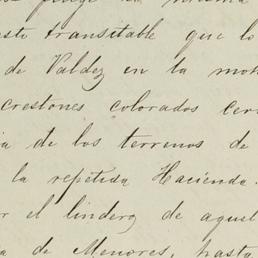 misma
transitable que lo
de Valdez en la mon
crestones colorados cer
ia de los terrenos de
la repetida Hacienda
r el lindero de aquel
a de Menores, hasta